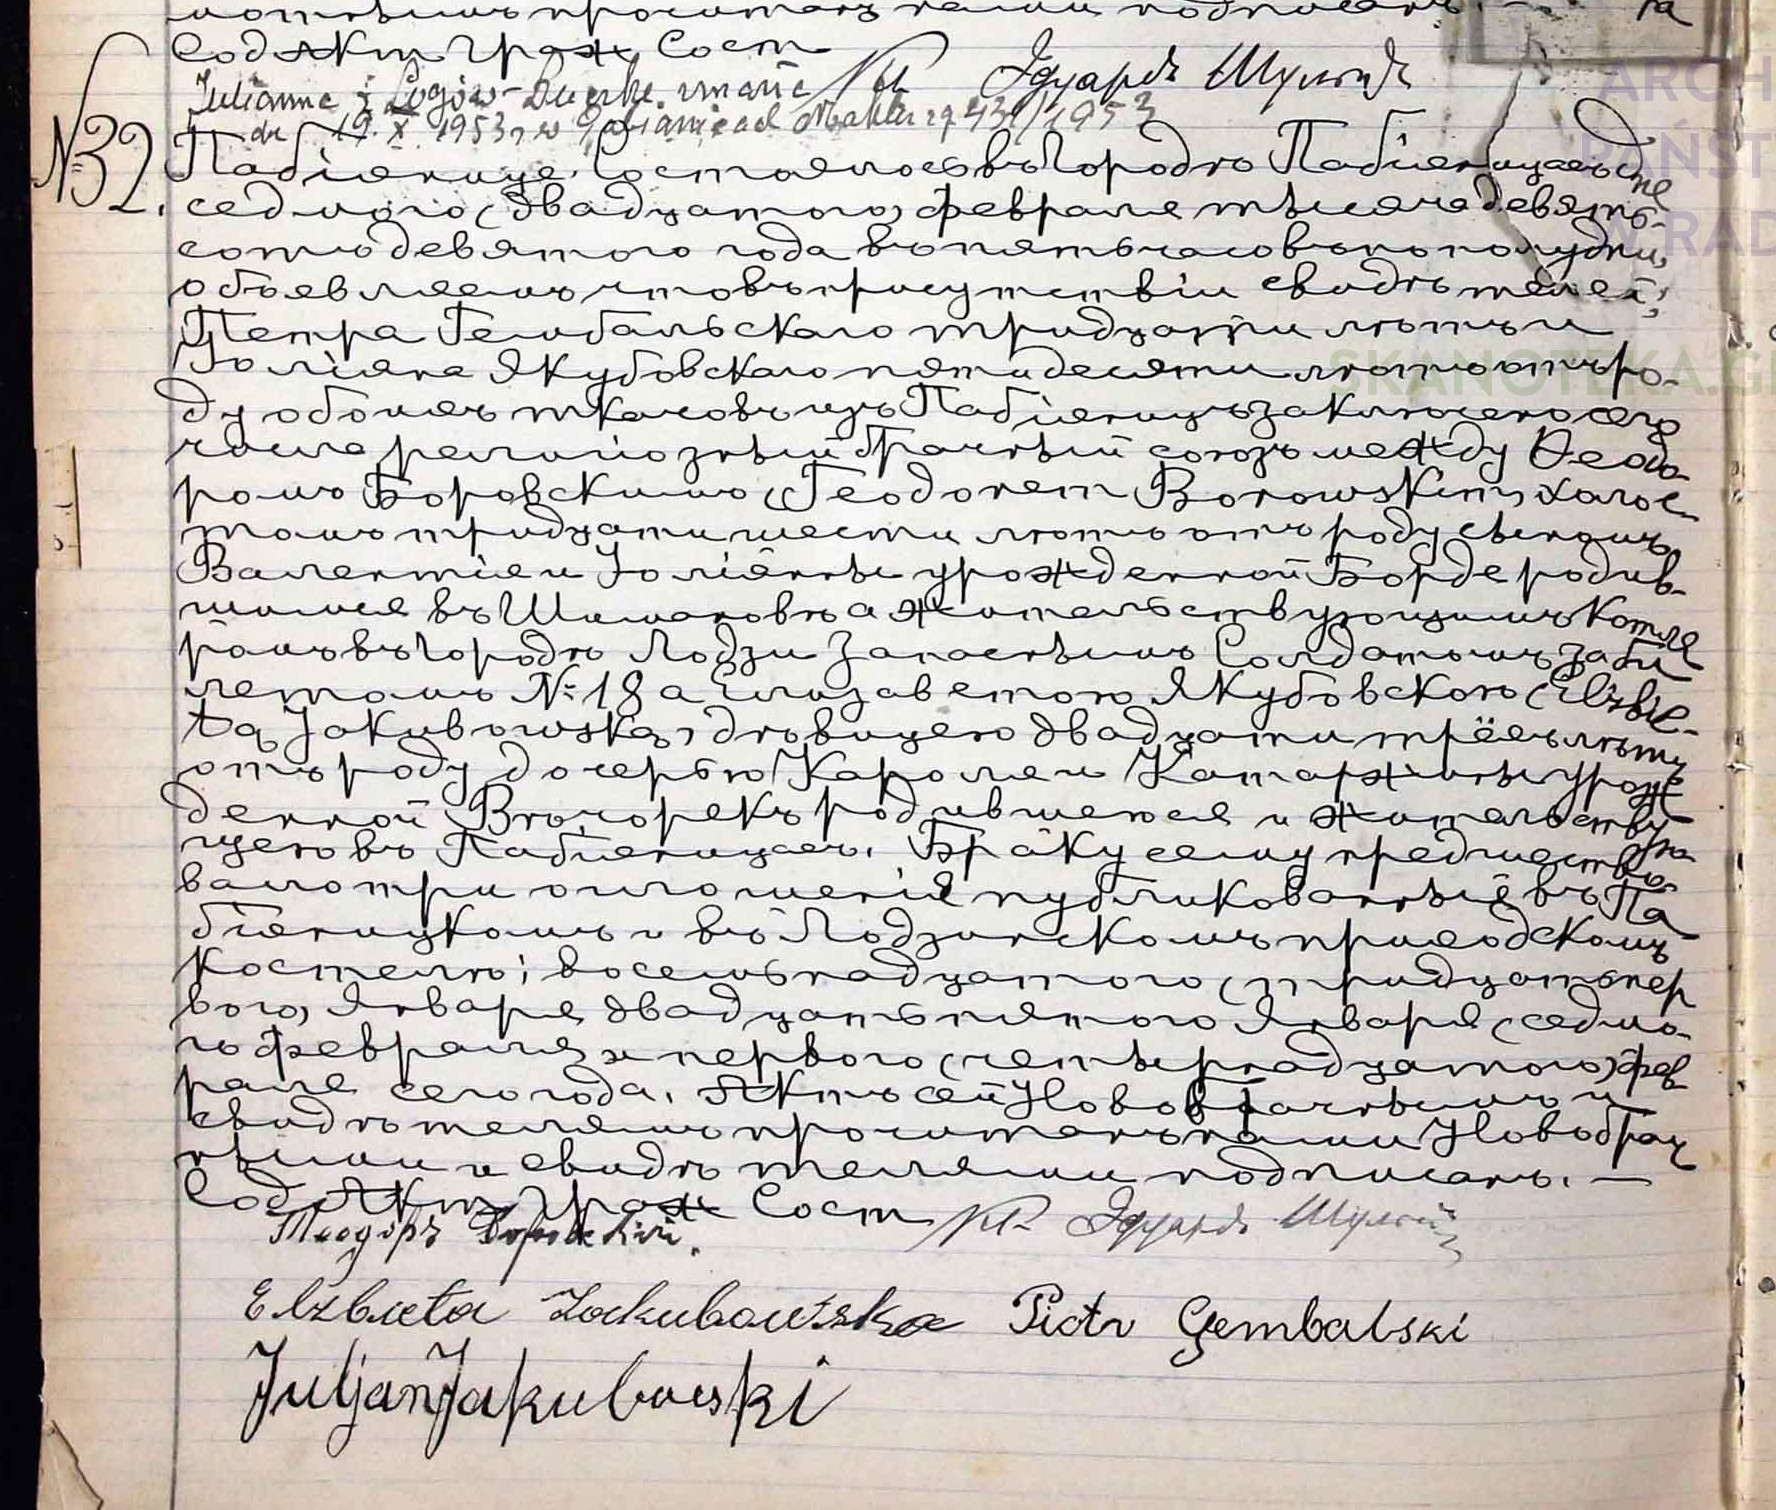 Сод Акт Граж Сост
Эдуардъ Шульцъ
Julianna z
zmarła
dn 19. X 1953 r w Pabianicach
1953
№32.
Пабіянице. Состоялось въ городѣ Пабіяницахъ
седьмого (двадцатого) февраля тысяча девять-
сотъ девятого года въ пять часовъ по полудни,
объявляемъ что въ присутствіи свидѣтелей;
Петра Гембальскаго тридцати лѣтъ и
Юліяна Якубовскаго пятидесяти лѣтъ отъ ро-
ду обоихъ ткачовъ изъ Пабіяницъ заключенъ сего
числа религіозный брачный союзъ между Ѳеодо-
ромъ Боровскимъ (Teodorem Borowskim) холос-
тымъ тридцати шести лѣтъ отъ роду сыномъ
Валентія и Юліянны урожденной Борде родив-
шимся въ а жительствующимъ
въ городѣ Лодзи запаснымъ солдатомъ за би-
летомъ №18 а Елизаветою Якубовскою (Elżbie-
tą Jakubowską) дѣвицею двадцати трёхъ лѣтъ
отъ роду дочерью Кароля и Катаржины урож-
денной Влочорекъ родившеюся и жительству-
щею въ Пабіяницахъ. Браку сему предшество-
вало три оглошенія публикованныя въ Па
біяницкомъ и въ Лодзинскомъ приходскомъ
костелѣ; восемьнадцатого (тридцать пер
вого) Января, двадцать пятого Января (седьмо-
го февраля) и первого (четырнадцатого) фев
раля сего года. Актъ сей Новобрачнымъ и
свидѣтелямъ прочитанъ нами Новобрач
ными и свидѣтелями подписанъ. —
Сод Акт Граж Сост Эдуардъ Шульцъ
Теодоръ Боровскій.
Elżbieta Jakubowska Piotr Gembalski
Juljan Jakubowski